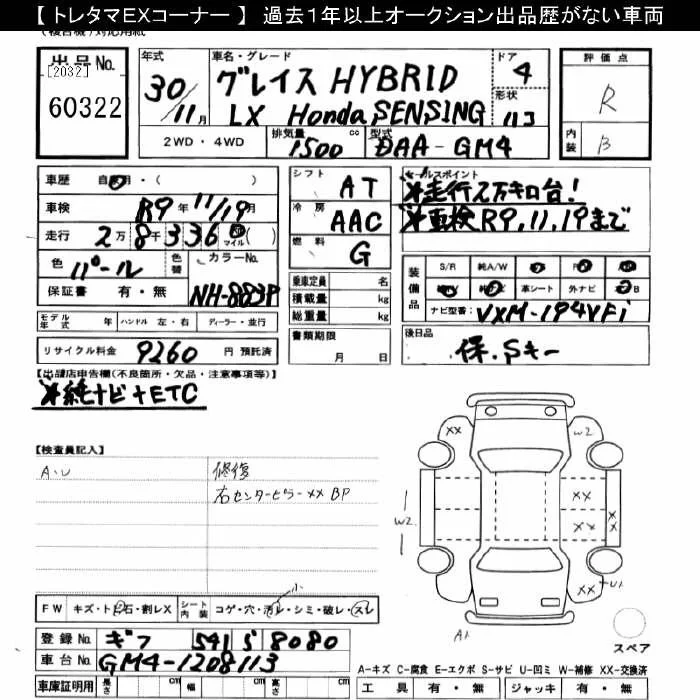 【 トレタマEXコーナー 】 過去1年以上オークション出品歴がない車両
出品No.
[2032]
60322
年式
30/11月
車名・グレード
グレイス HYBRID
LX Honda SENSING
ドア
4
形状
113
評価点
R
内装
B
2WD ・ 4WD
排気量
1500 cc
型式
DAA-GM4
車歴
車検 R9年11/19月
走行 2万8千336 マイル( )
色 パール
色替
カラーNo.
NH-883P
保証書 有 ・ 無
モデル年式 年
ハンドル 左・右
ディーラー・並行
リサイクル料金 9260 円 預託済
シフト AT
冷房 AAC
燃料 G
乗車定員 名
積載量 kg
総重量 kg
書類期限
月 日
セールスポイント
※走行2万キロ台!
※車検R9.11.19まで
装備品
S/R 純A/W
革シート 外ナビ
ナビ型番: VXM-194VFi
後日品
保.Sキー
【出品店申告欄(不良箇所・欠品・注意事項等)】
※純ナビ+ETC
【検査員記入】
A・U
修復
右センターピラーXX BP
FW
キズ・ト石・割レX
シート内装
コゲ・穴・汚レ・シミ・破レ・スレ
小
XX
W2
XX
W2
XX
XX
XX
U1
A1
スペア
登録No. ギフ 541 ら 8080
車台No. GM4-1208113
車庫証明用
長さ cm
幅 cm
高さ cm
A-キズ C-腐食 E-エクボ S-サビ U-凹ミ W-補修 XX-交換済
工具 有・無 ジャッキ 有・無